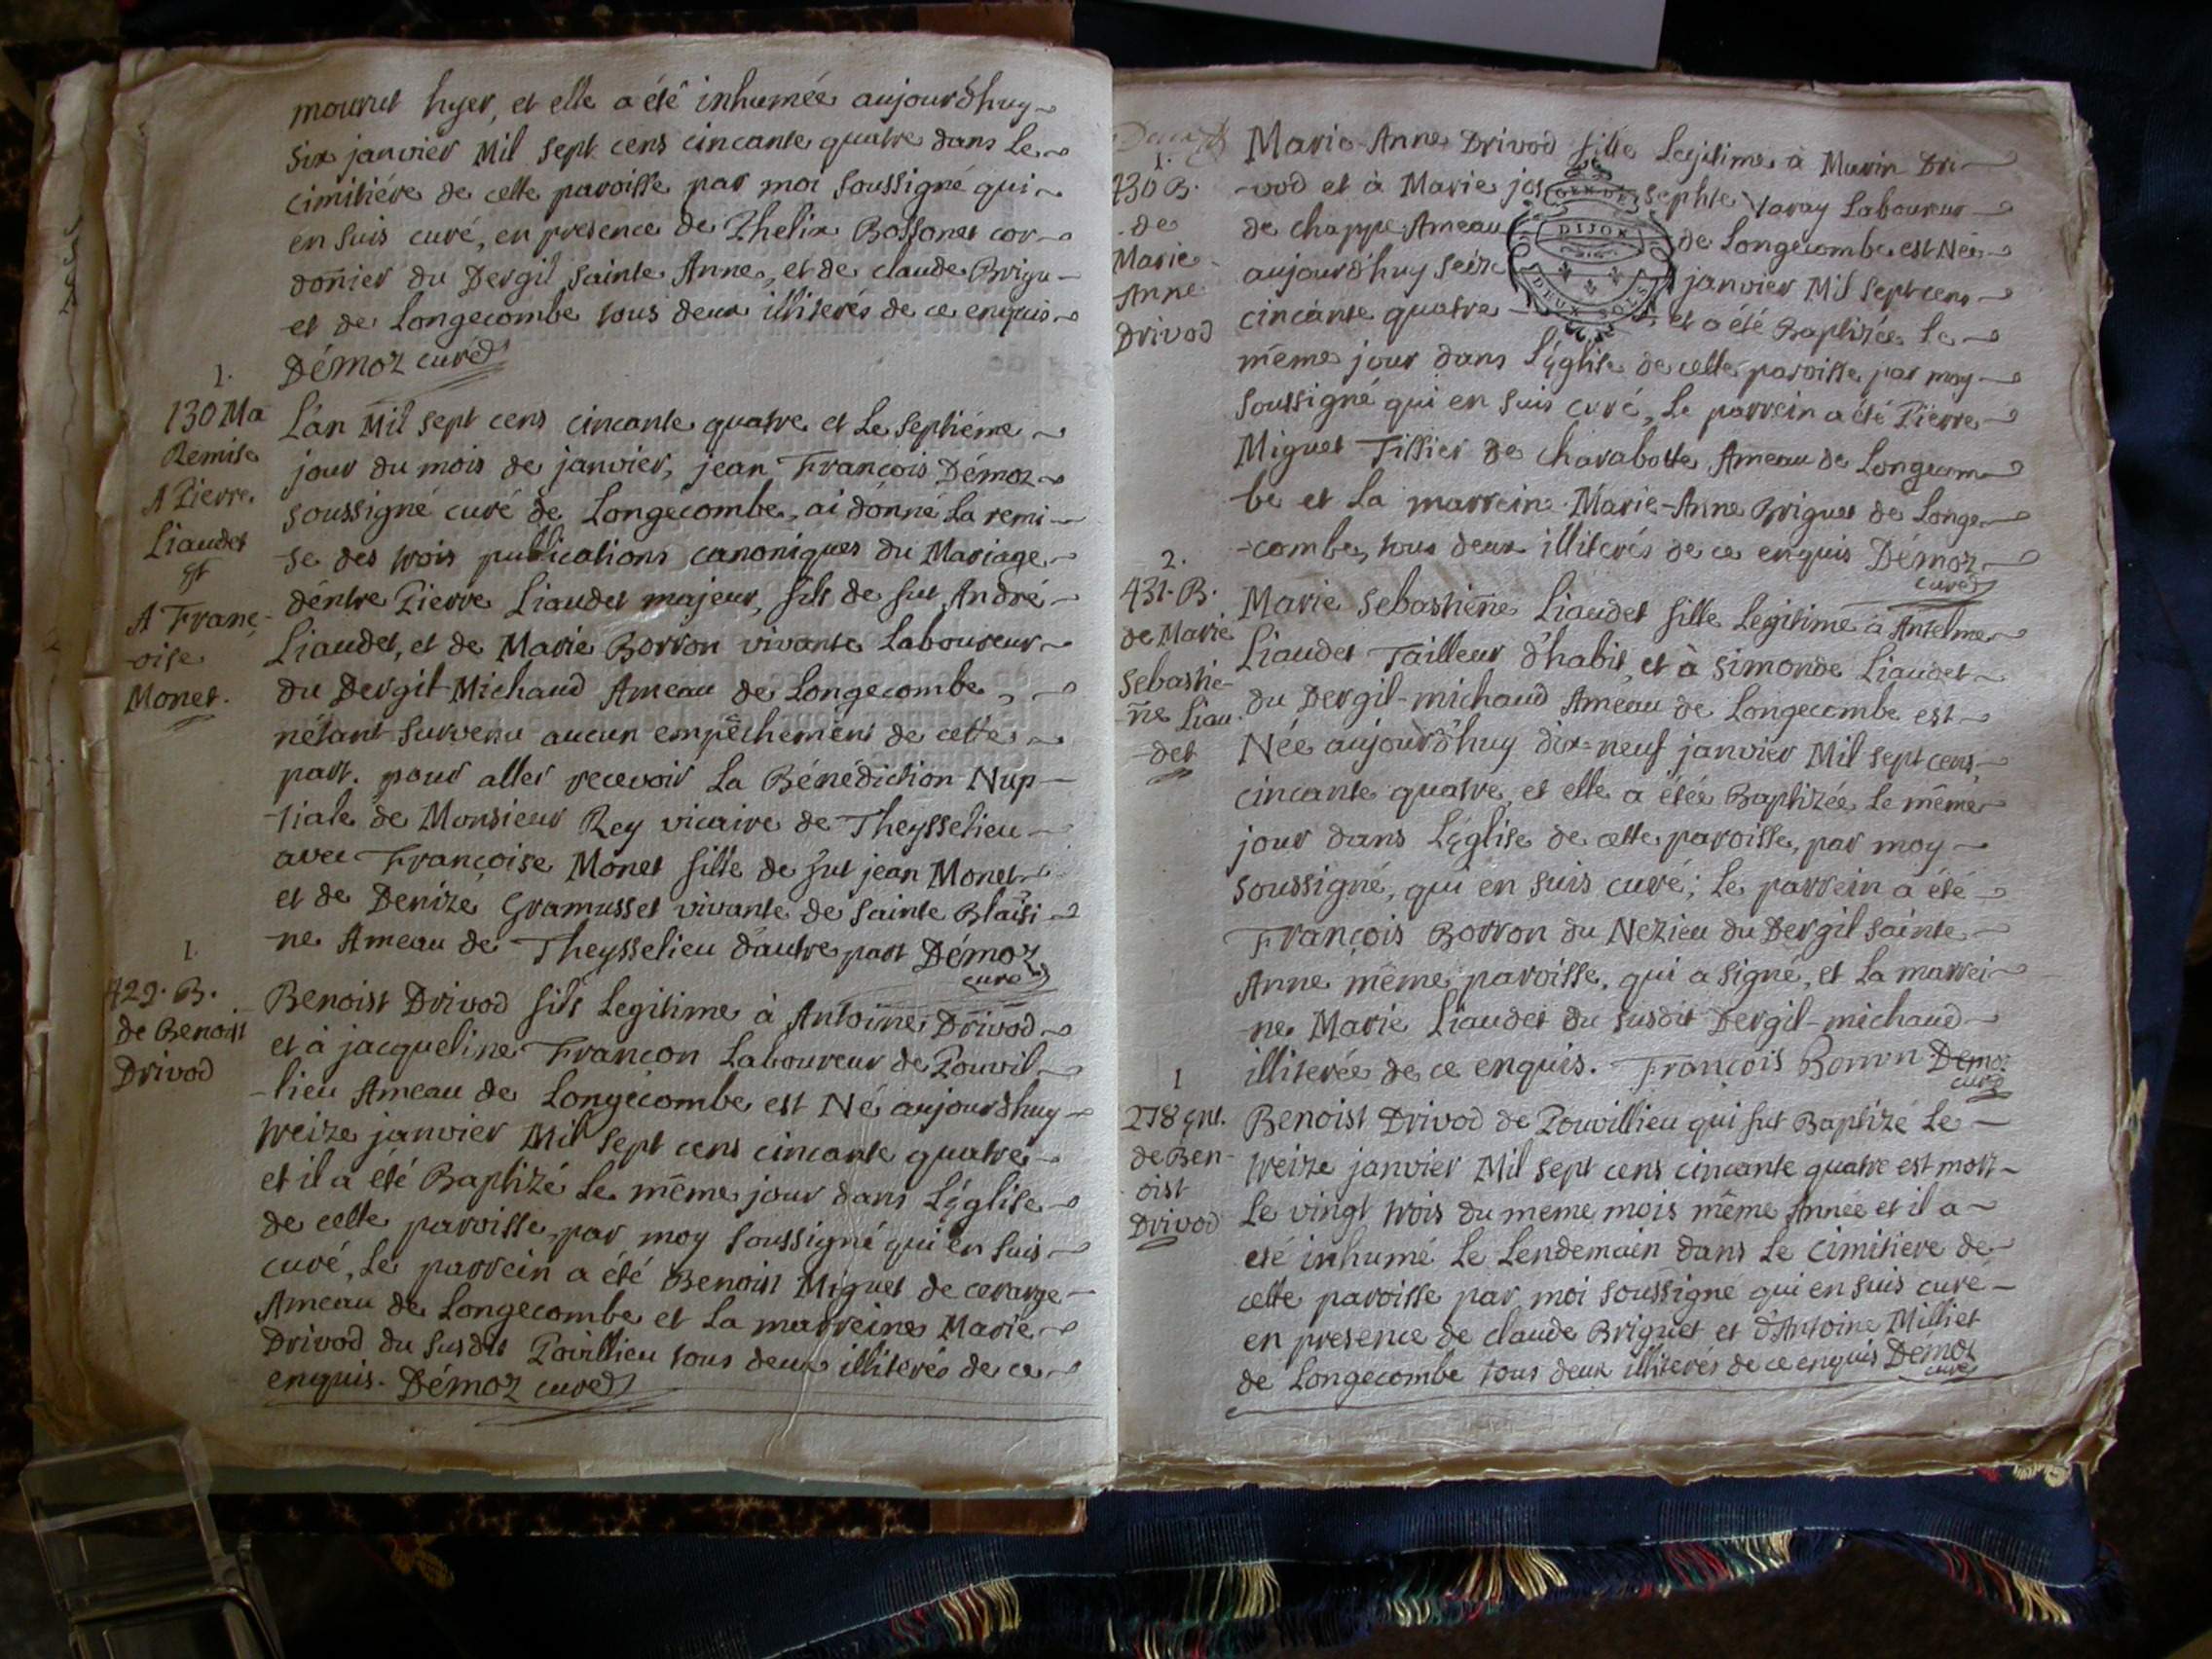 mourut hyer, et elle a été inhumée aujourd'huy
six janvier Mil sept cens cincante quatre dans Le
cimitiére de cette paroisse par moi soussigné qui
en suis curé, en presence de Phelix Bossonet cor-
donier du Dergil sainte Anne, et de claude Brigu-
et de Longecombe tous deux illiterés de ce enquis
Démoz curé
1.
130 Ma
Remise
A Pierre
Liaudet
et
A Franç-
-oise
Monet.
L'an Mil sept cens cincante quatre et Le septiéme
jour du mois de janvier, jean François Démoz
soussigné curé de Longecombe, ai donné La remi-
se des trois publications canoniques du Mariage
d'entre Pierre Liaudet majeur, fils de fut André
Liaudet, et de Marie Borron vivante Laboureur
du Dergil-Michaud Ameau de Longecombe,
n'étant survenu aucun empêchement de cette
part. pour aller recevoir La Bénédiction Nup-
-tiale de Monsieur Rey vicaire de Theysselieu
avec Françoise Monet fille de fut jean Monet
et de Denize Gramusset vivante de sainte Blaisi-
ne Ameau de Theysselieu d'autre part Démoz
curé
1.
429. B.
de Benoist
Drivod
Benoist Drivod fils Legitime à Antoine Drivod
et à jacqueline Françon Laboureur de Pouvil-
-lieu Ameau de Longecombe est Né aujourd'huy
treize janvier Mil sept cens cincante quatre
et il a été Baptizé Le même jour dans L'église
de cette paroisse, par moy soussigné qui en suis
curé, Le parrein a été Benoist Miguet de
Ameau de Longecombe et La marreine Marie
Drivod du susdit Pouvillieu tous deux illiterés de ce
enquis. Démoz curé
1.
430 B.
de
Marie
Anne
Drivod
Marie-Anne Drivod fille Legitime à Murin Dri-
-vod et à Marie josephte Varay Laboureur
de chappe Ameau de Longecombe est Née
aujourd'huy seize janvier Mil sept cens
cincante quatre et a été Baptizée Le
DIJON
DEUX SOLS
même jour dans L'église de cette paroisse par moy
soussigné qui en suis curé, Le parrein a été Pierre
Miguet Tissier de charabotte Ameau de Longecom-
be et La marreine Marie-Anne Briguet de Longe-
-combe, tous deux illiterés de ce enquis Démoz
curé
2.
431. B.
de Marie
Sebastie-
ne Liau-
-det
Marie Sebastiene Liaudet fille Legitime à Antelme
Liaudet Tailleur d'habit, et à simonde Liaudet
du Dergil-michaud Ameau de Longecombe est
Née aujourd'huy dix-neuf janvier Mil sept cens
cincante quatre, et elle a étée Baptizée Le même
jour dans L'église de cette paroisse, par moy
soussigné, qui en suis curé; Le parrein a été
François Borron du Nezieu du Dergil sainte
Anne même paroisse, qui a signé, et La marrei-
ne Marie Liaudet du susdit Dergil-michaud
illiterée de ce enquis. François Borron Démoz
curé
1
278 ent.
de Ben-
oist
Drivod
Benoist Drivod de Pouvillieu qui fut Baptizé Le
treize janvier Mil sept cens cincante quatre est mort
Le vingt trois du meme mois même Année et il a
eté inhumé Le Lendemain dans Le cimitiere de
cette paroisse par moi soussigné qui en suis curé
en presence de claude Briguet et d'Antoine Milliet
de Longecombe tous deux illiterés de ce enquis Démoz
curé